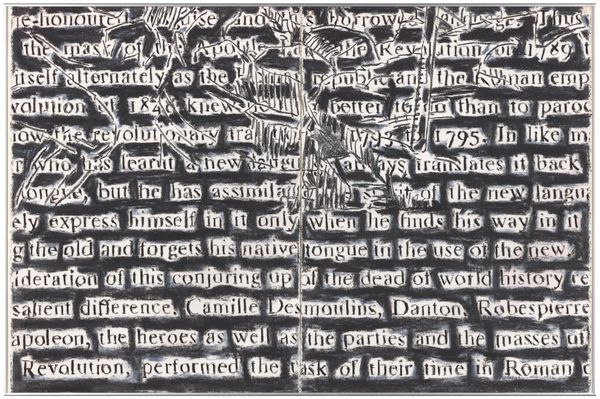 e-honoured disguise and this borrowed language. Thus
the mask of the Apostle the Revolution of 1789 t
itself alternately as the Republic and the Roman emp
volution of 1848 knew better to do than to parod
now the revolutionary tra 1793 to 1795. In like m
r who has learnt a new langu always translates it back
tongue, but he has assimilated the spirit of the new langua
ely express himself in it only when he finds his way in it
g the old and forgets his native tongue in the use of the new.
ideration of this conjuring up of the dead of world history re
salient difference. Camille Desmoulins, Danton, Robespierre
apoleon, the heroes as well as the parties and the masses of
Revolution, performed the task of their time in Roman c